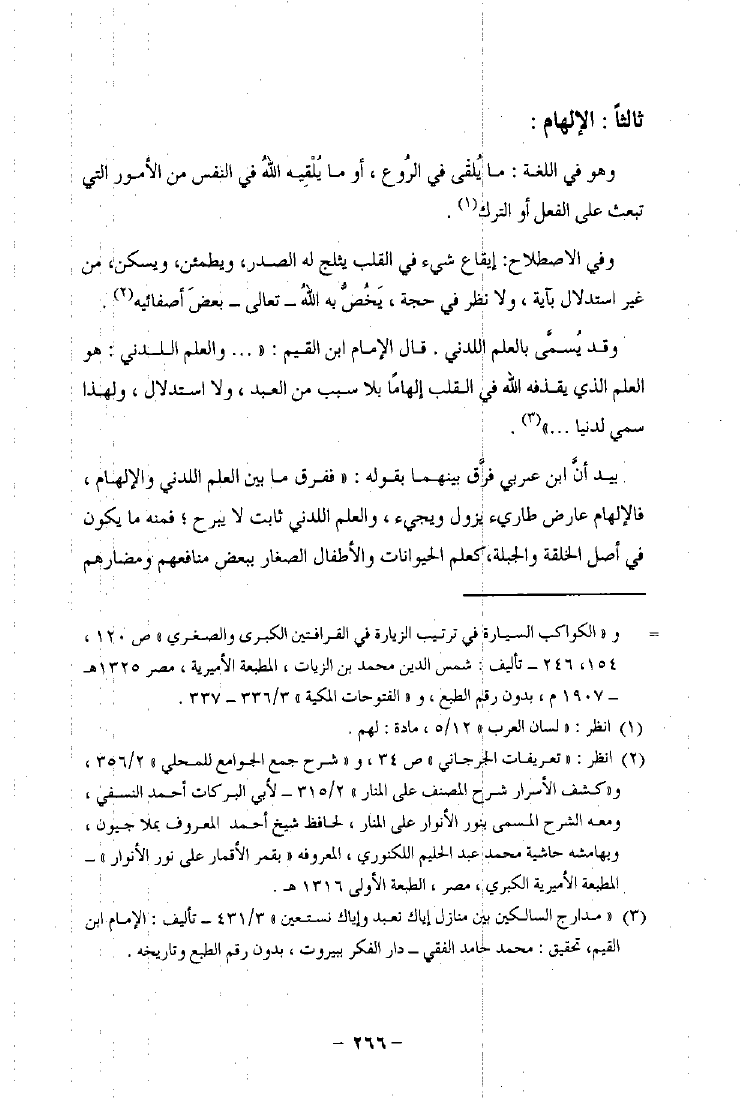 ثالثاً : الإلهام :
وهو في اللغة : مـا يُلقَى في الرُوع ، أو مـا يُلْقِيـه اللهُ في النفس من الأمـور التي
تبعث على الفعل أو الترك(١) .
وفي الاصطلاح: إيقاع شيء في القلب يثلج له الصـدر، ويطمئن، ويسكن، من
غير استدلال بآية ، ولا نظر في حجة ، يَخُصُّ به اللهُ ــ تعالى ــ بعضَ أصفائيه(٢) .
وقـد يُسمَّى بالعلم اللدني . قال الإمام ابن القيم : « ... والعلم اللـدني : هو
العلم الذي يقـذفه الله في القلب إلهامًا بلا سبب من العبد ، ولا استدلال ، ولهـذا
سمي لدنيا ...»(٣) .
بيـد أنَّ ابن عربي فرَّق بينهمـا بقوله : « ففـرق مـا بين العلم اللدني والإلهـام ،
فالإلهام عارض طاريء يزول ويجيء ، والعلم اللدني ثابت لا يبرح ؛ فمنه ما يكون
في أصل الخلقة والجبلة، كعلم الحيوانات والأطفال الصغار ببعض منافعهم ومضارهم
= و « الكواكب السيـارة في ترتيب الزيارة في القرافتين الكبرى والصغري » ص ١٢٠ ،
١٥٤، ٢٤٦ ــ تأليف : شمس الدين محمد بن الزيات ، المطبعة الأميرية ، مصر ١٣٢٥هـ
ــ ١٩٠٧ م ، بدون رقم الطبع ، و « الفتوحات المكية » ٣/ ٣٣٦ ــ ٣٣٧ .
(١) انظر : « لسان العرب » ٥/١٢ ، مادة : لهم .
(٢) انظر : « تعريفات الجرجاني » ص ٣٤ ، و « شرح جمع الجوامع للمحلي » ٣٥٦/٢ ،
و«كشف الأسرار شرح المصنف على المنار » ٣١٥/٢ ــ لأبي البركات أحمد النسفي ،
ومعه الشرح المسمى بنور الأنوار على المنار ، لحافظ شيخ أحمد المعروف بملا جيون ،
وبهامشه حاشية محمد عبد الحليم اللكنوري ، المعروفه « بقمر الأقمار على نور الأنوار » ــ
المطبعة الأميرية الكبري ، مصر ، الطبعة الأولى ١٣١٦ هـ .
(٣) « مـدارج السالكين بين منازل إياك نعبد وإياك نستعين » ٤٣١/٣ ــ تأليف : الإمام ابن
القيم، تحقيق : محمد حامد الفقي ــ دار الفكر ببيروت ، بدون رقم الطبع وتاريخه .
– ٢٦٦ –